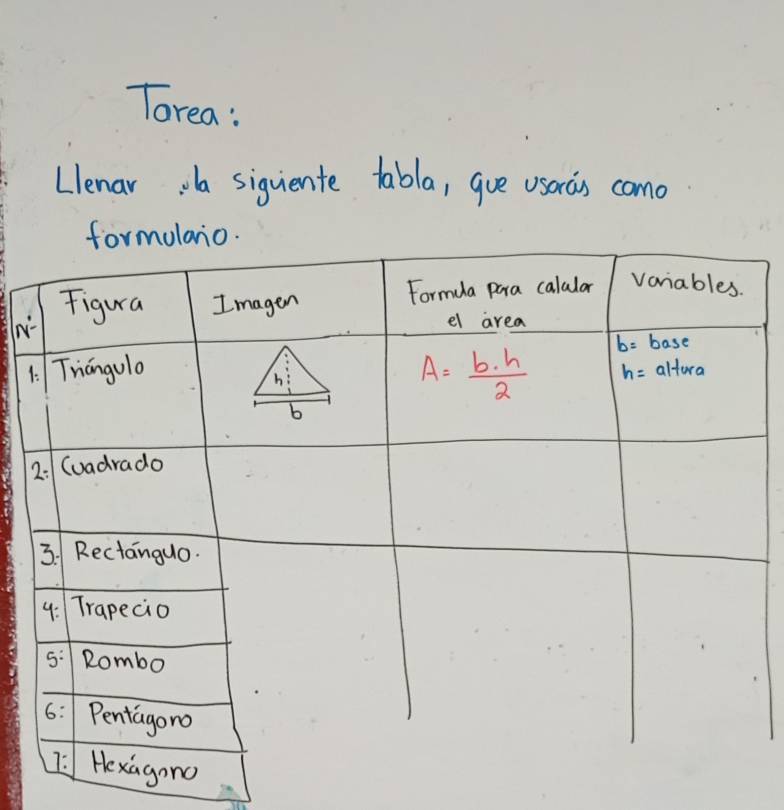 Tarea:
Llenar la siguiente tabla, que usarás como
formulario.
N- Figura Imagen Formula para calular el área Variables.
1: Triángulo h b A = b.h / 2 b= base h= altura
2: Cuadrado
3: Rectánguo.
4: Trapecio
5: Rombo
6: Pentágono
7: Hexágono